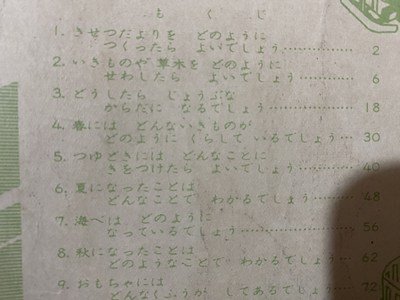 もくじ
1. きせつだよりを どのように
つくったら よいでしょう…………… 2
2. いきものや 草木を どのように
せわしたら よいでしょう………… 6
3. どうしたら じょうぶな
からだに なるでしょう………… 18
4. 春には どんないきものが
どのように くらして いるでしょう…… 30
5. つゆどきには どんなことに
きをつけたら よいでしょう………… 40
6. 夏になったことは
どんなことで わかるでしょう…… 48
7. 海べは どのように
なっているでしょう…………… 56
8. 秋になったことは
どのようなことで わかるでしょう…… 62
9. おもちゃには
どんなくふうが してあるでしょう…… 72